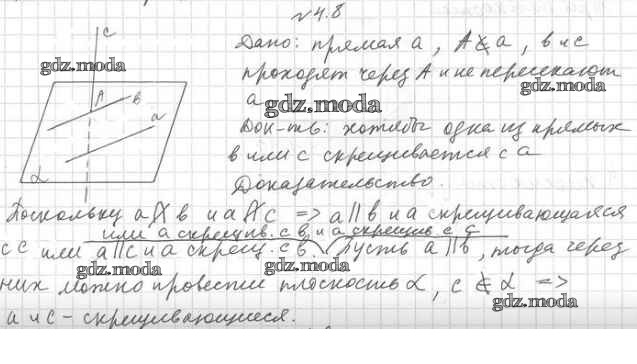 №4.8
Дано: прямая a, A ∉ a, b и c
проходят через A и не пересекают
a.
Док-ть: хотябы одна из прямых
b или c скрещивается с a
Доказательство.
Поскольку a ∦ b и a ∦ c => a || b и a скрещивающаяся
или a скрещив. с b и a скрещив. с c
с c или a || c и a скрещ. с b. Пусть a || b, тогда через
них можно провести плоскость α, c ⊄ α =>
a и c - скрещивающиеся.
c
A
b
a
α
gdz.moda
gdz.moda
gdz.moda
gdz.moda
gdz.moda
gdz.moda